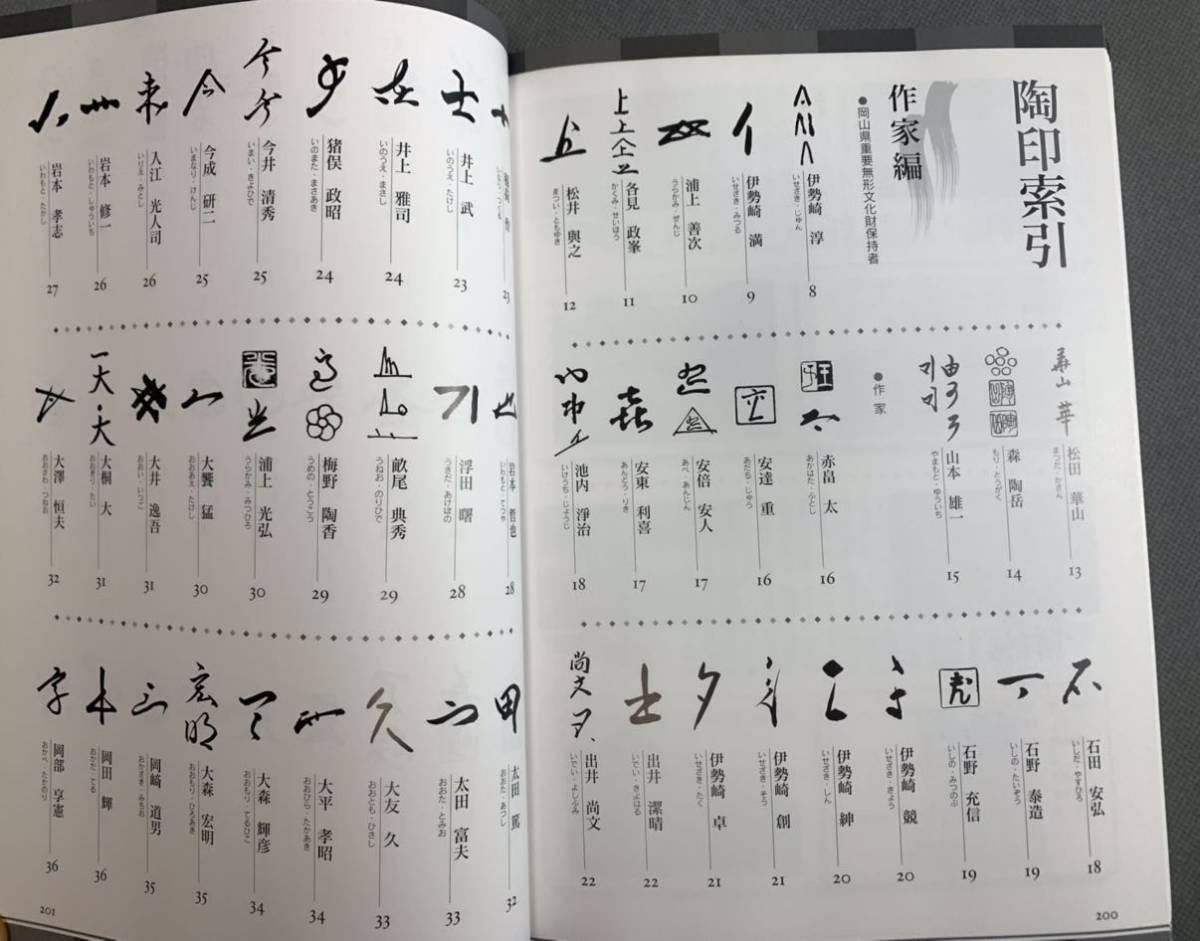 陶印索引
作家編
●岡山県重要無形文化財保持者
伊勢崎 淳 いせざき・じゅん 8
伊勢崎 満 いせざき・みつる 9
浦上 善次 うらかみ・ぜんじ 10
各見 政峯 かくみ・せいほう 11
松井 與之 まつい・ともゆき 12
松田 華山 まつだ・かざん 13
森 陶岳 もり・とうがく 14
山本 雄一 やまもと・ゆういち 15
●作家
赤畠 太 あかはた・ふとし 16
安達 重 あだち・じゅう 16
安倍 安人 あべ・あんじん 17
安東 利喜 あんどう・りき 17
池内 淨治 いけうち・じょうじ 18
石田 安弘 いしだ・やすひろ 18
石野 泰造 いしの・たいぞう 19
石野 充信 いしの・みつのぶ 19
伊勢崎 競 いせざき・きょう 20
伊勢崎 紳 いせざき・しん 20
伊勢崎 創 いせざき・そう 21
伊勢崎 卓 いせざき・たく 21
出井 潔晴 いでい・きよはる 22
出井 尚文 いでい・よしふみ 22
200
23
井上 武 いのうえ・たけし 23
井上 雅司 いのうえ・まさし 24
猪俣 政昭 いのまた・まさあき 24
今井 清秀 いまい・きよひで 25
今成 研二 いまなり・けんじ 25
入江 光人司 いりえ・みとし 26
岩本 修一 いわもと・しゅういち 26
岩本 孝志 いわもと・たかし 27
岩本 哲也 いわもと・てつや 28
浮田 曙 うきだ・あけぼの 28
畝尾 典秀 うねお・のりひで 29
梅野 陶香 うめの・とうこう 29
浦上 光弘 うらかみ・みつひろ 30
大饗 猛 おおあえ・たけし 30
大井 逸吾 おおい・いつご 31
大桐 大 おおぎり・たい 31
大澤 恒夫 おおさわ・つねお 32
太田 篤 おおた・あつし 32
太田 富夫 おおた・とみお 33
大友 久 おおとも・ひさし 33
大平 孝昭 おおひら・たかあき 34
大森 輝彦 おおもり・てるひこ 34
大森 宏明 おおもり・ひろあき 35
岡﨑 道男 おかざき・みちお 35
岡田 輝 おかだ・てる 36
岡部 亨憲 おかべ・たかのり 36
201